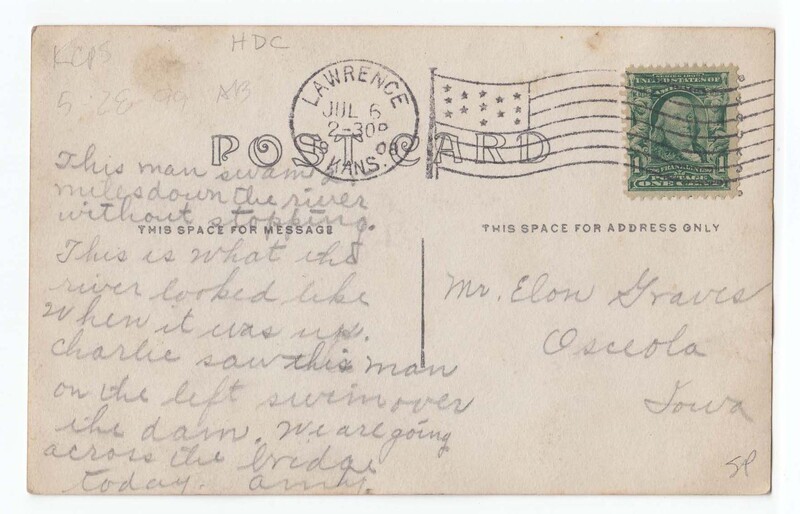 HDC
KCPS
5 28 99 AB
LAWRENCE
JUL 6
2-30P
1908
KANS.
SERIES 1902
POST CARD
FRANKLIN
1 POSTAGE 1
ONE CENT
This man swam
miles down the river
without stopping.
THIS SPACE FOR MESSAGE
This is what the
river looked like
When it was up.
Charlie saw this man
on the left swim over
the dam. We are going
across the bridge
today. Amy.
THIS SPACE FOR ADDRESS ONLY
Mr. Elon Graves
Osceola
Iowa
SP